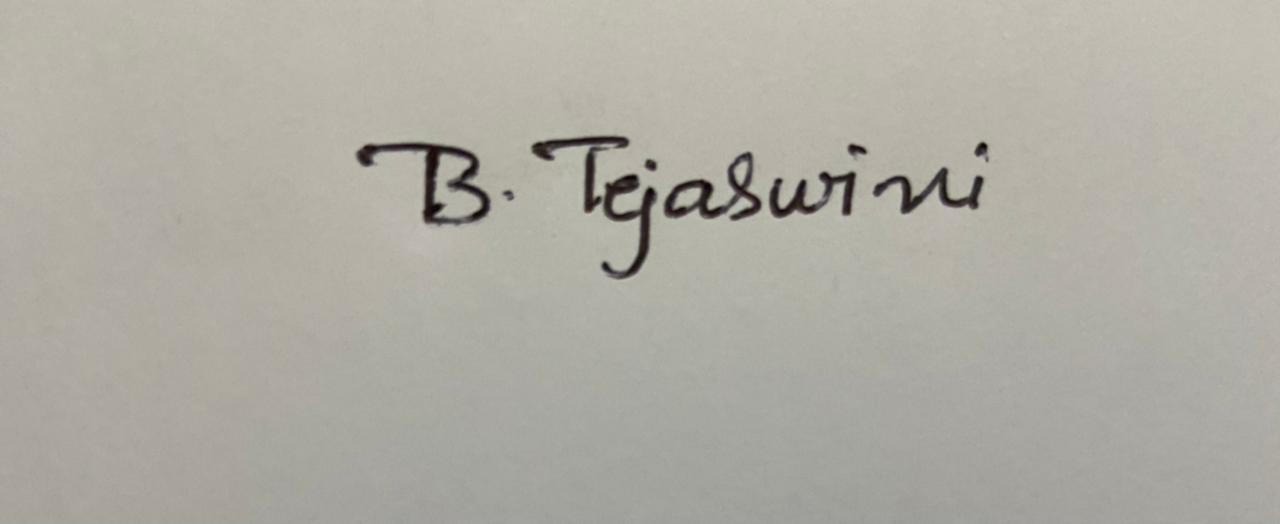 B. Tejaswini